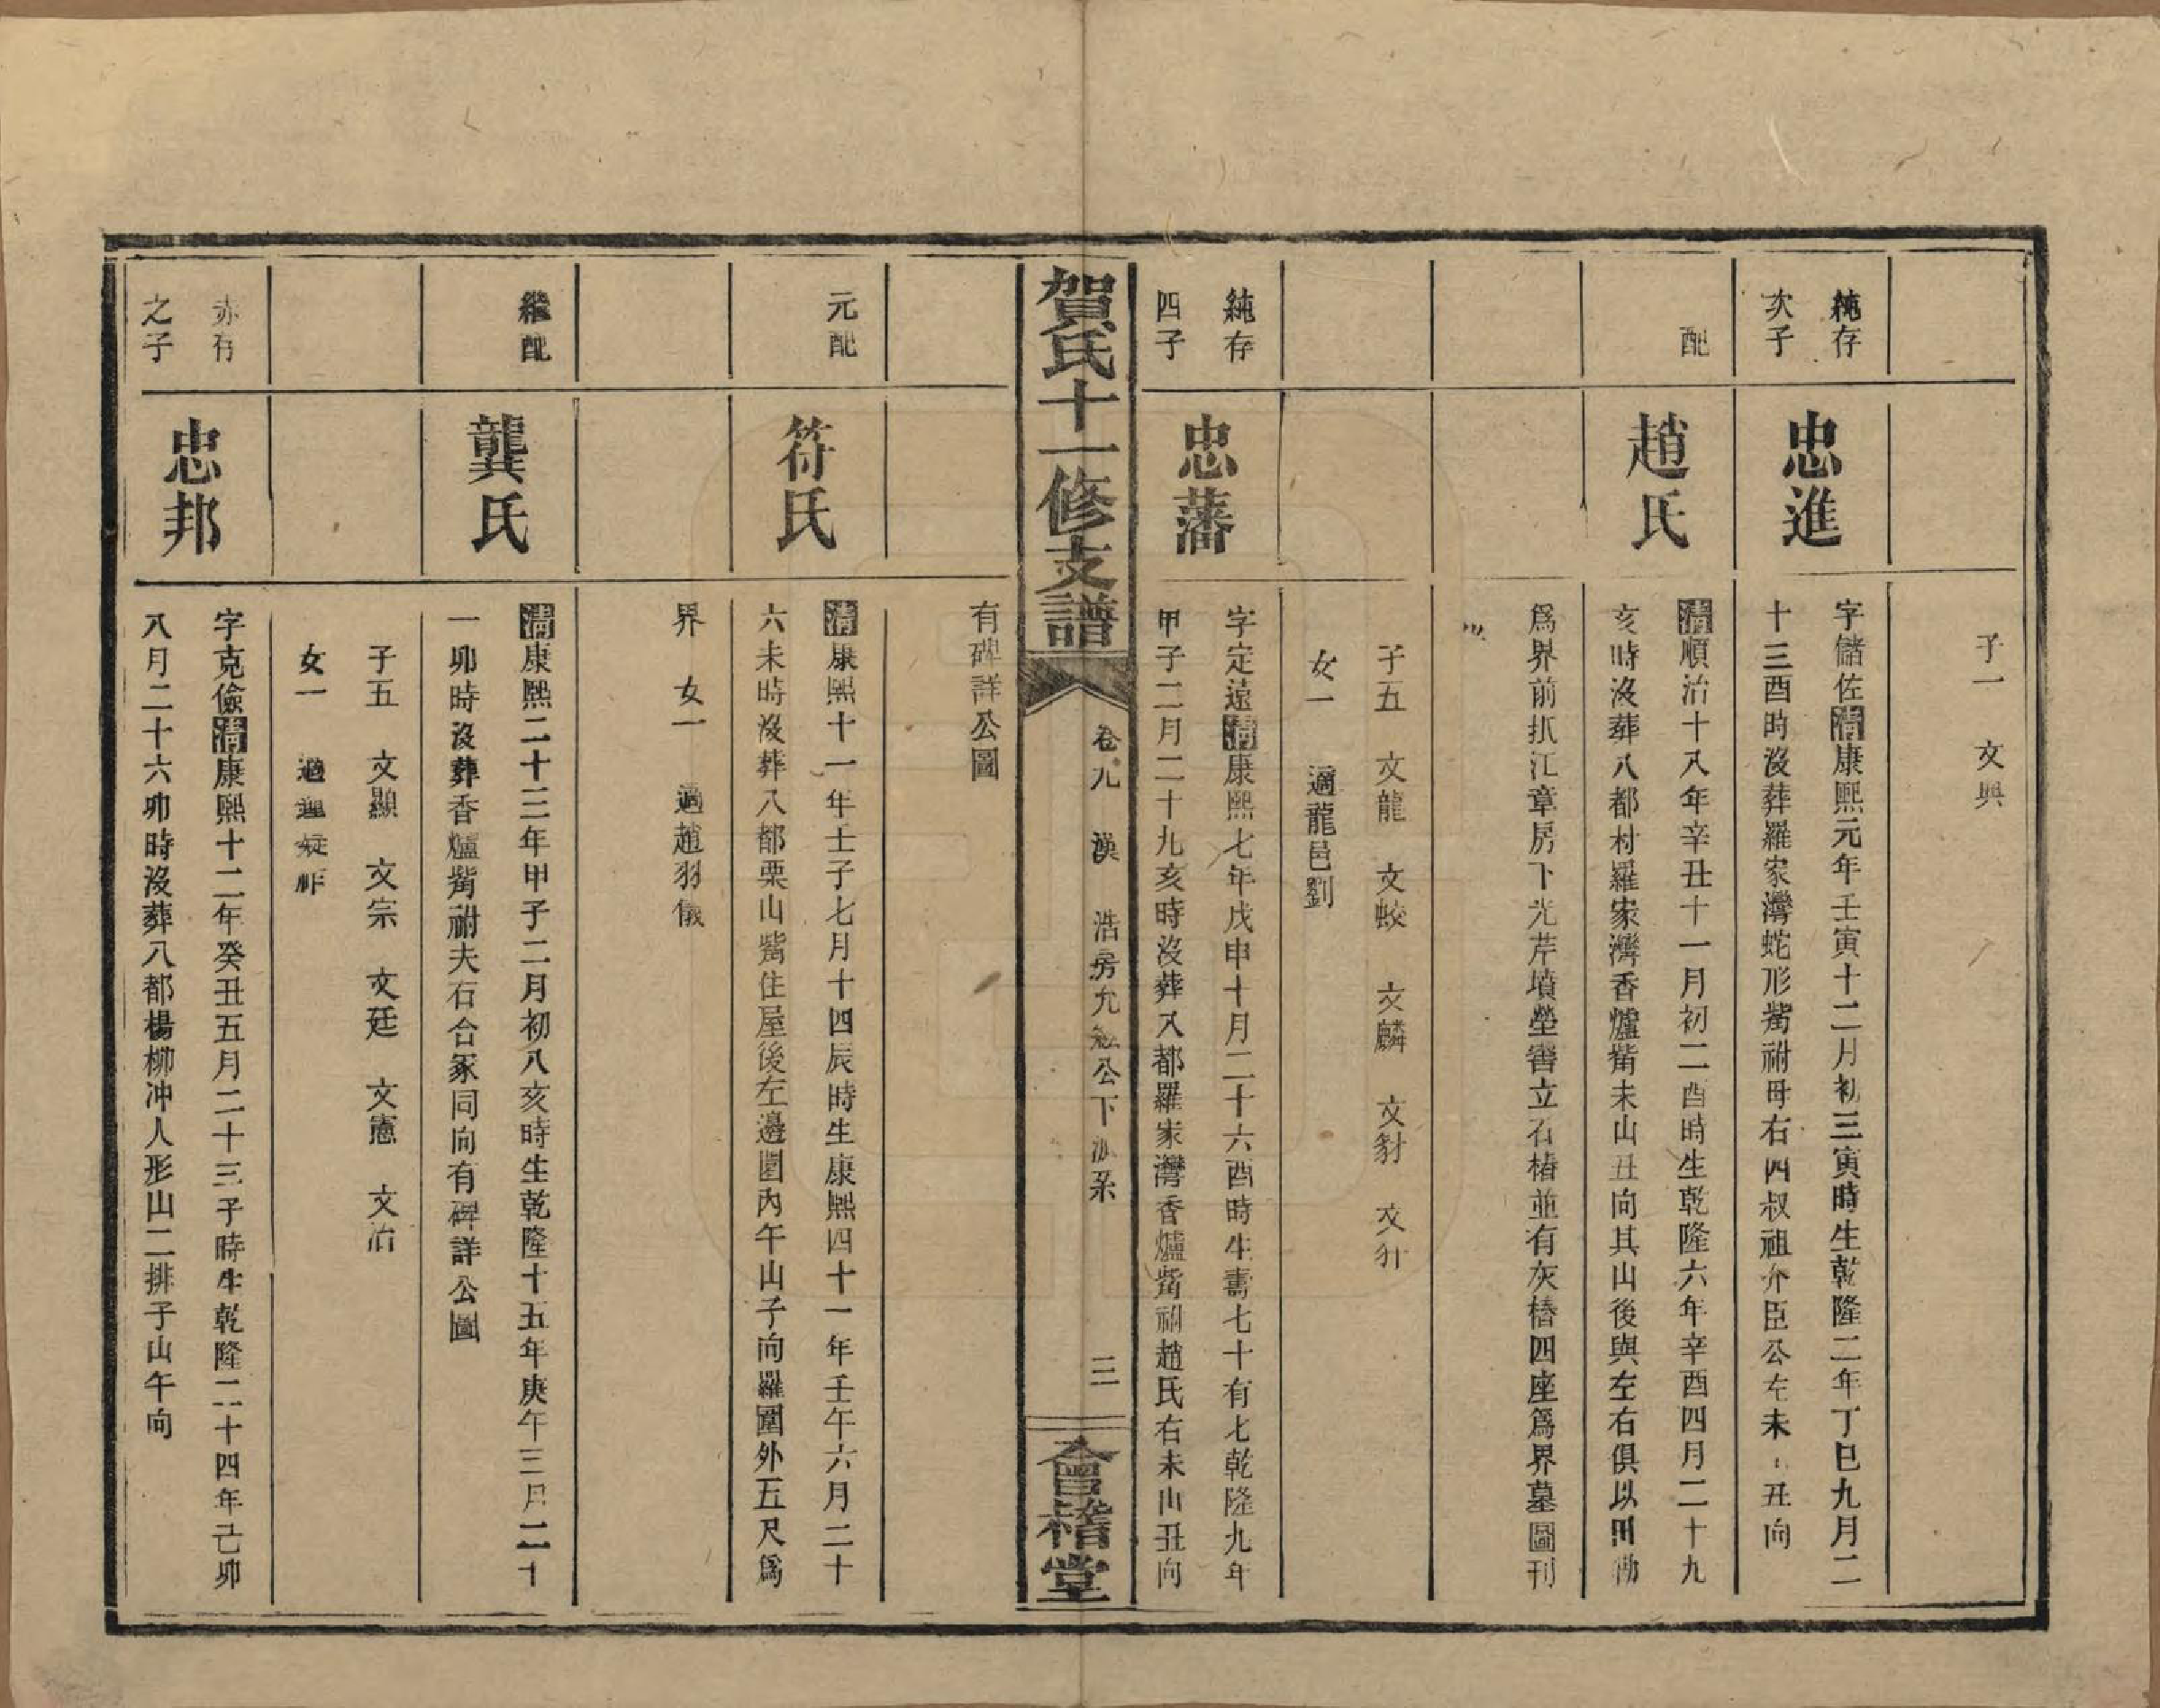 子一　文興
純存
次子
忠進
字儲佐清康熙元年壬寅十二月初三寅時生乾隆二年丁巳九月二
十三酉時沒葬羅家灣蛇形觜祔母右四叔祖介臣公左未山丑向
配
趙氏
清順治十八年辛丑十一月初二酉時生乾隆六年辛酉四月二十九
亥時沒葬八都村羅家灣香爐觜未山丑向其山後與左右俱以田
爲界前抓江章房下光芹墳塋窖立石樁並有灰樁四座爲界墓圖刊
子五　文龍　文蛟　文麟　文豺　文豻
女一　適龍邑劉
純存
四子
忠藩
字定遠清康熙七年戊申十月二十六酉時生壽七十有七乾隆九年
甲子二月二十九亥時沒葬八都羅家灣香爐觜祔趙氏右未山丑向
賀氏十一修支譜
卷九　漢　浩房九公下派系　三
會稽堂
有碑詳公圖
元配
符氏
清康熙十一年壬子七月十四辰時生康熙四十一年壬午六月二十
六未時沒葬八都栗山觜住屋後左邊園內午山子向羅圍外五尺爲
界　女一　適趙羽儀
繼配
龔氏
清康熙二十三年甲子二月初八亥時生乾隆十五年庚午三月二十
一卯時沒葬香爐觜祔夫石合冢同向有碑詳公圖
子五　文顯　文宗　文廷　文憲　文治
女一　適
亦存
之子
忠邦
字克儉清康熙十二年癸丑五月二十三子時生乾隆二十四年己卯
八月二十六卯時沒葬八都楊柳冲人形山二排子山午向